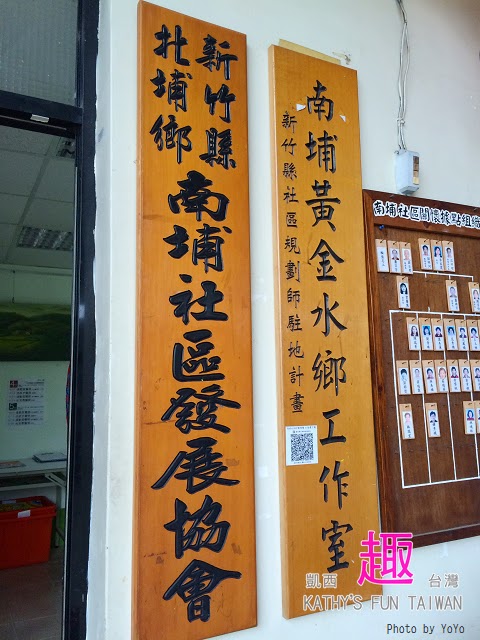 新竹縣
北埔鄉
南埔社區發展協會
南埔黃金水鄉工作室
新竹縣社區規劃師駐地計畫
南埔社區關懷據點組織
凱西 趣 台灣
KATHY'S FUN TAIWAN
Photo by YoYo